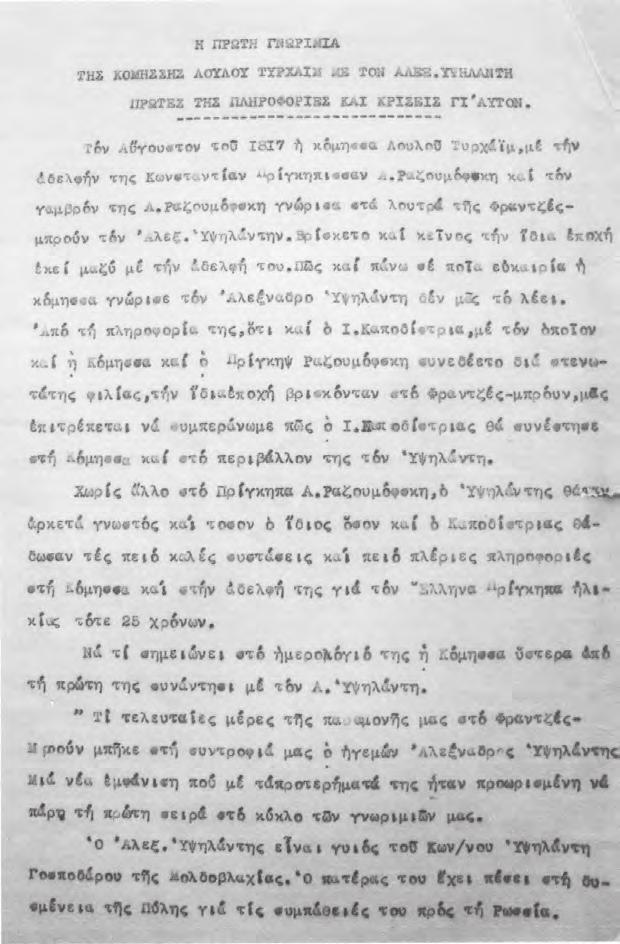 Η ΠΡΩΤΗ ΓΝΩΡΙΜΙΑ
ΤΗΣ ΚΟΜΗΣΣΗΣ ΛΟΥΛΟΥ ΤΥΡΧΑΙΜ ΜΕ ΤΟΝ ΑΛΕΞ.ΥΨΗΛΑΝΤΗ
ΠΡΩΤΕΣ ΤΗΣ ΠΛΗΡΟΦΟΡΙΕΣ ΚΑΙ ΚΡΙΣΕΙΣ ΓΙ'ΑΥΤΟΝ.
Τόν Αὔγουστον τοῦ 1817 ἡ κόμησσα Λουλοῦ Τυρχάϊμ,μέ τήν
ἀδελφήν της Κωνσταντίαν Πρίγκηπισσαν Α.Ραζουμόφσκη καί τόν
γαμβρόν της Α.Ραζουμόφσκη γνώρισα στά λουτρά τῆς Φραντζές-
μπρούν τόν 'Αλεξ.'Υψηλάντην.Βρίσκετο καί κεῖνος τήν ἴδια ἐποχή
ἐκεί μαζύ μέ τήν ἀδελφή του.Πῶς καί πάνω σέ ποῖα εὐκαιρία ἡ
κόμησσα γνώρισε τόν 'Αλεξναδρο 'Υψηλάντη δέν μᾶς τό λέει.
'Από τή πληροφορία της,ὅτι καί ὁ Ι.Καποδίστρια,μέ τόν ὁποῖον
καί ἡ Κόμησσα καί ὁ Πρίγκηψ Ραζουμόφσκη συνεδέετο διά στενω-
τάτης φιλίας,τήν ἴδιαἐποχή βρισκόνταν στό Φραντζές-μπρόυν,μᾶς
ἐπιτρέπεται νά συμπεράνωμε πῶς ὁ Ι.Καποδίστριας θά συνέστησε
στή Κόμησσα καί στό περιβάλλον της τόν 'Υψηλάντη.
Χωρίς ἄλλο στό Πρίγκηπα Α.Ραζουμόφσκη,ὁ 'Υψηλάντης
ἀρκετά γνωστός καί τοσον ὁ ἴδιος ὅσον καί ὁ Καποδίστριας θά-
δωσαν τές πειό καλές συστάσεις καί πειό πλέριες πληροφοριές
στή Κόμησσα καί στήν ἀδελφή της γιά τόν Ἕλληνα Πρίγκηπα ἡλι-
κίας τότε 25 χρόνων.
Νά τί σημειώνει στό ἡμερολόγιό της ἡ Κόμησσα ὕστερα ἀπό
τή πρώτη της συνάντησι μέ τόν Α.'Υψηλάντη.
" Τί τελευταίες μέρες τῆς παραμονῆς μας στό Φραντζές-
Μπρούν μπῆκε στή συντροφιά μας ὁ ἡγεμών 'Αλεξναδρος 'Υψηλάντης
Μιά νέα ἐμφάνιση πού μέ τάπροτερήματά της ἦταν προωρισμένη νά
πάρη τή πρώτη σειρά στό κύκλο τῶν γνωριμιῶν μας.
'Ο 'Αλεξ.'Υψηλάντης εἶναι γυιός τοῦ Κων/νου 'Υψηλάντη
Γοσποδάρου τῆς Μολδοβλαχίας.'Ο πατέρας του ἔχει πέσει στή δυ-
σμένεια τῆς Πόλης γιά τίς συμπάθειές του πρός τή Ρωσσία.